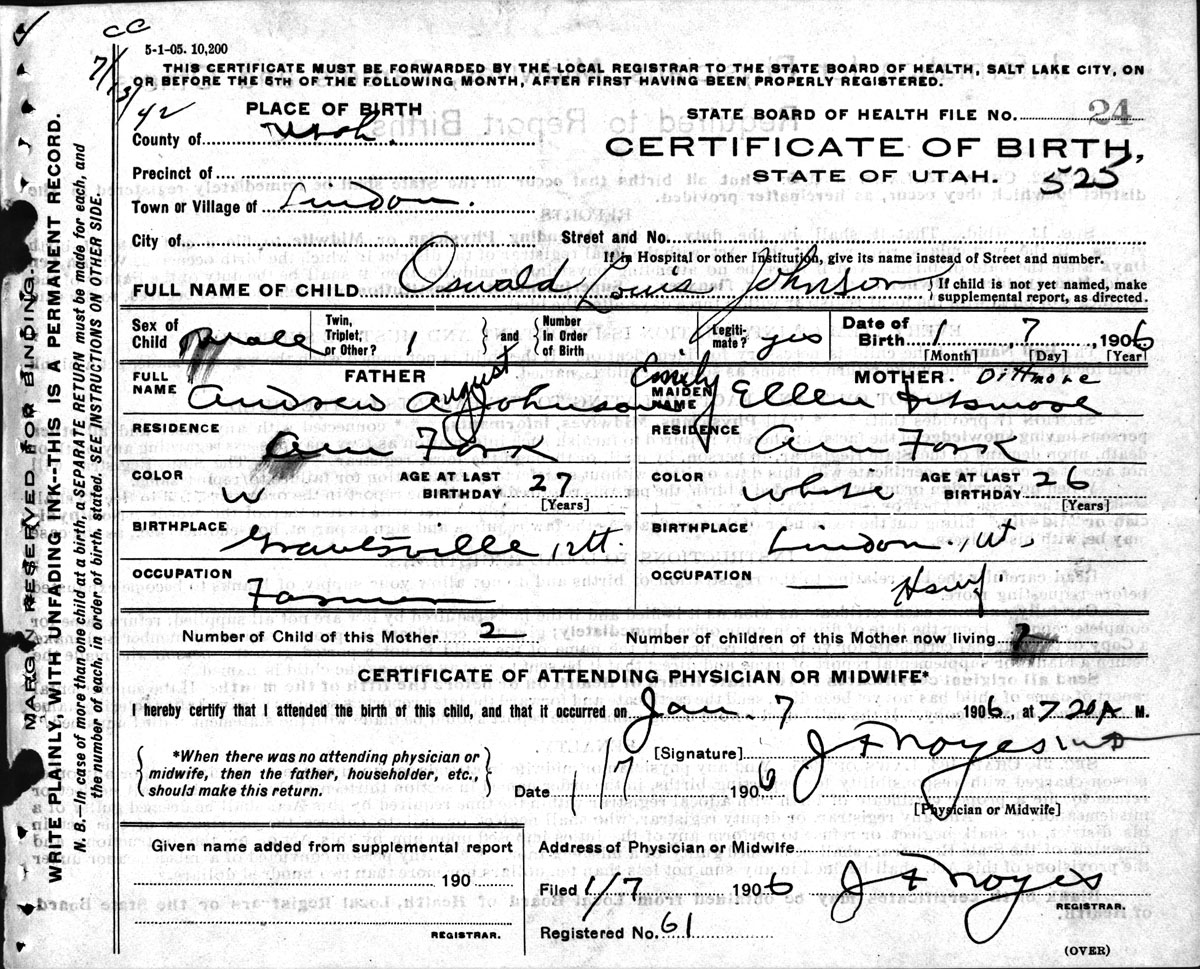 CC
5-1-05. 10,200
7/13/42
THIS CERTIFICATE MUST BE FORWARDED BY THE LOCAL REGISTRAR TO THE STATE BOARD OF HEALTH, SALT LAKE CITY, ON
OR BEFORE THE 5TH OF THE FOLLOWING MONTH, AFTER FIRST HAVING BEEN PROPERLY REGISTERED.
PLACE OF BIRTH
STATE BOARD OF HEALTH FILE NO. 24
County of Utah
CERTIFICATE OF BIRTH,
Precinct of
STATE OF UTAH. 525
Town or Village of Lindon.
City of Street and No.
If in Hospital or other Institution, give its name instead of Street and number.
FULL NAME OF CHILD Oswald Louis Johnson {If child is not yet named, make supplemental report, as directed.
Sex of Child Male Twin, Triplet, or Other? 1 } and { Number in Order of Birth Legiti-mate? yes Date of Birth 1, 7, 1906
[Month] [Day] [Year]
FATHER
FULL NAME Andrew August Johnson
MOTHER. Dittmore
MAIDEN NAME Emily Ellen
RESIDENCE Am Fork
RESIDENCE Am Fork
COLOR W AGE AT LAST BIRTHDAY 27 [Years]
COLOR White AGE AT LAST BIRTHDAY 26 [Years]
BIRTHPLACE Grantsville, Ut.
BIRTHPLACE Lindon, Ut.
OCCUPATION Farmer
OCCUPATION — Hswf
Number of Child of this Mother 2 Number of children of this Mother now living 2
CERTIFICATE OF ATTENDING PHYSICIAN OR MIDWIFE*
I hereby certify that I attended the birth of this child, and that it occurred on Jan. 7 1906, at 7 20 A M.
*When there was no attending physician or
midwife, then the father, householder, etc.,
should make this return.
[Signature] J F Noyes MD
Date 1/7 1906
[Physician or Midwife]
Given name added from supplemental report
190
REGISTRAR.
Address of Physician or Midwife
Filed 1/7 1906 J F Noyes
REGISTRAR.
Registered No. 61
(OVER)
MARGIN RESERVED FOR BINDING.
WRITE PLAINLY, WITH UNFADING INK--THIS IS A PERMANENT RECORD.
N. B.—In case of more than one child at a birth, a SEPARATE RETURN must be made for each, and
the number of each, in order of birth, stated. SEE INSTRUCTIONS ON OTHER SIDE.